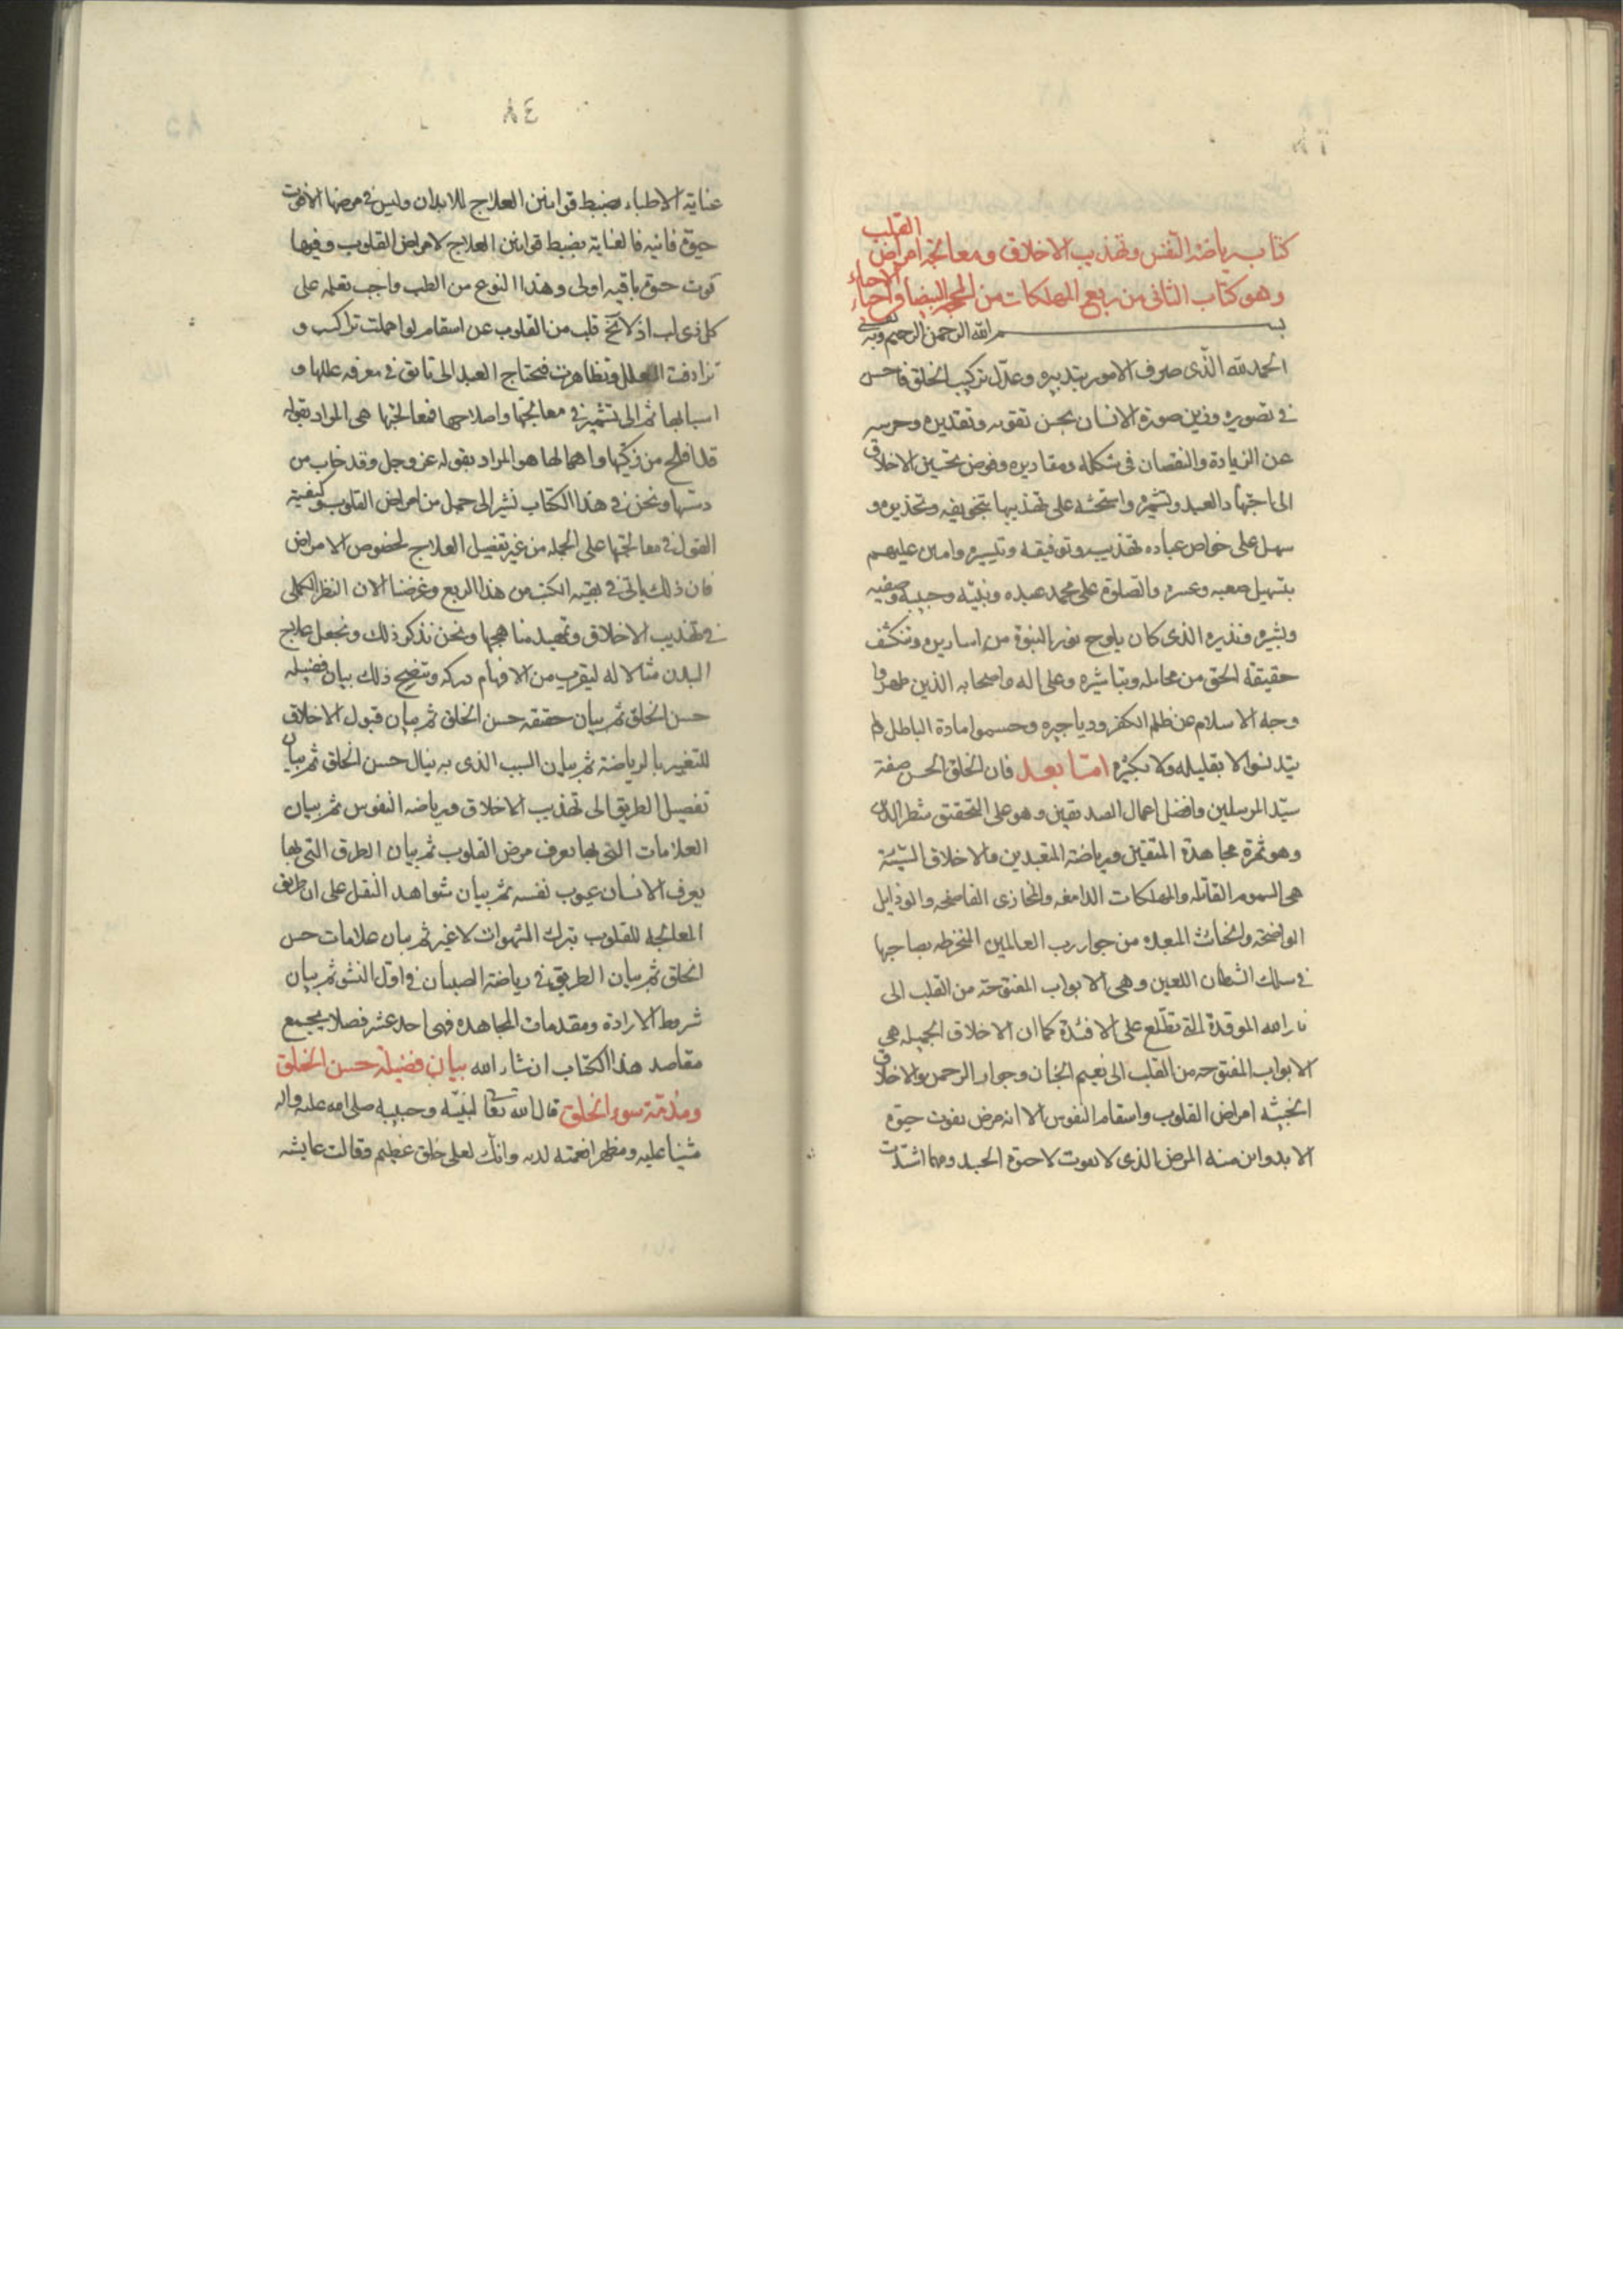 كتاب رياضة النفس وتهذيب الاخلاق ومعالجة امراض القلب
وهو كتاب الثانى من ربع المهلكات من المحجة البيضا واحياء الاحياء
بسم الله الرحمن الرحيم وبه نستعين
الحمد لله الذى صرف الامور بتدبيره وعدّل تركيب الخلق فاحسن
فى تصويره وزين صورة الانسان بحسن تقويمه وتقديره وحرسه
عن الزيادة والنقصان فى شكله ومقاديره وفوض تحسين الاخلاق
الى اجتهاد العبد وتشميره واستحثه على تهذيبها بتخويفه وتحذيره و
سهل على خواص عباده تهذيب وتوفيقه وتيسيره وامتن عليهم
بتسهيل صعبه وعسره والصلوة على محمد عبده ونبيّه وحبيبه وصفيه
وبشيره ونذيره الذى كان يلوح نور النبوة من اساريره وتنكشف
حقيقة الحق من مخايله وتباشيره وعلى اله واصحابه الذين طهروا
وجه الاسلام عن ظلم الكفر ودياجيره وحسموا مادة الباطل فلم
يتدنسوا لا بقليله ولا بكثيره امّا بعد فان الخلق الحسن صفة
سيّد المرسلين وافضل اعمال الصديقين وهو على التحقيق شطر الدين
وهو ثمرة مجاهدة المتقين ورياضة المتعبدين والاخلاق السّيئة
هى السموم القاتله والمهلكات الدامغه والمخازى الفاضحه والرذايل
الواضحة والخبائث المبعده من جوار رب العالمين المنخرطه بصاحبها
فى سلك الشيطان اللعين وهى الابواب المفتوحة من القلب الى
نار الله الموقدة التى تطّلع على الافئدة كما ان الاخلاق الجميله هي
الابواب المفتوحه من القلب الى نعيم الجنان وجوار الرحمن والاخلاق
الخبيثه امراض القلوب واسقام النفوس الا انه مرض يفوت حيوة
الابد واين منه المرض الذى لا يفوت الا حيوة الجسد ومهما اشتدّت
٨٤
عناية الاطباء بضبط قوانين العلاج للابدان وليس فى مرضها الا فوت
حيوة فانيه فالعناية بضبط قوانين العلاج لامراض القلوب وفيها
فوت حيوة باقيه اولى وهذا النوع من الطب واجب تعلمه على
كل ذى لب اذ لا يخ قلب من القلوب عن اسقام لو اهملت تراكمت و
ترادفت العلل وتظاهرت فيحتاج العبد الى تانق فى معرفه عللها و
اسبابها ثم الى تشمير فى معالجتها واصلاحها فمعالجتها هى المراد بقوله
قد افلح من زكيها واهمالها هو المراد بقوله عز وجل وقد خاب من
دسيها ونحن فى هذا الكتاب نشير الى جمل من امراض القلوب وكيفية
القول فى معالجتها على الجمله من غير تفصيل العلاج لخصوص الامراض
فان ذلك ياتى فى بقيه الكتب من هذا الربع وغرضنا الان النظر الكلى
فى تهذيب الاخلاق وتمهيد مناهجها ونحن نذكر ذلك ونجعل علاج
البدن مثالا له ليقرب من الافهام دركه ويتضح ذلك ببيان فضيله
حسن الخلق ثم بيان حقيقه حسن الخلق ثم بيان قبول الاخلاق
للتغيير بالرياضة ثم بيان السبب الذى به ينال حسن الخلق ثم بيان
تفصيل الطريق الى تهذيب الاخلاق ورياضه النفوس ثم بيان
العلامات التى بها يعرف مرض القلوب ثم بيان الطرق التى بها
يعرف الانسان عيوب نفسه ثم بيان شواهد النقل على ان طريق
المعالجه للقلوب بترك الشهوات لا غير ثم بيان علامات حسن
الخلق ثم بيان الطريق فى رياضة الصبيان فى اوّل النشو ثم بيان
شروط الارادة ومقدمات المجاهده فهى احد عشر فصلا يجمع
مقاصد هذا الكتاب ان شاء الله بيان فضيلة حسن الخلق
ومذمّة سوء الخلق قال الله تعالى لنبيّه وحبيبه صلى الله عليه واله
مثنيا عليه ومظهرا نعمته لديه وانك لعلى خلق عظيم وقالت عايشه